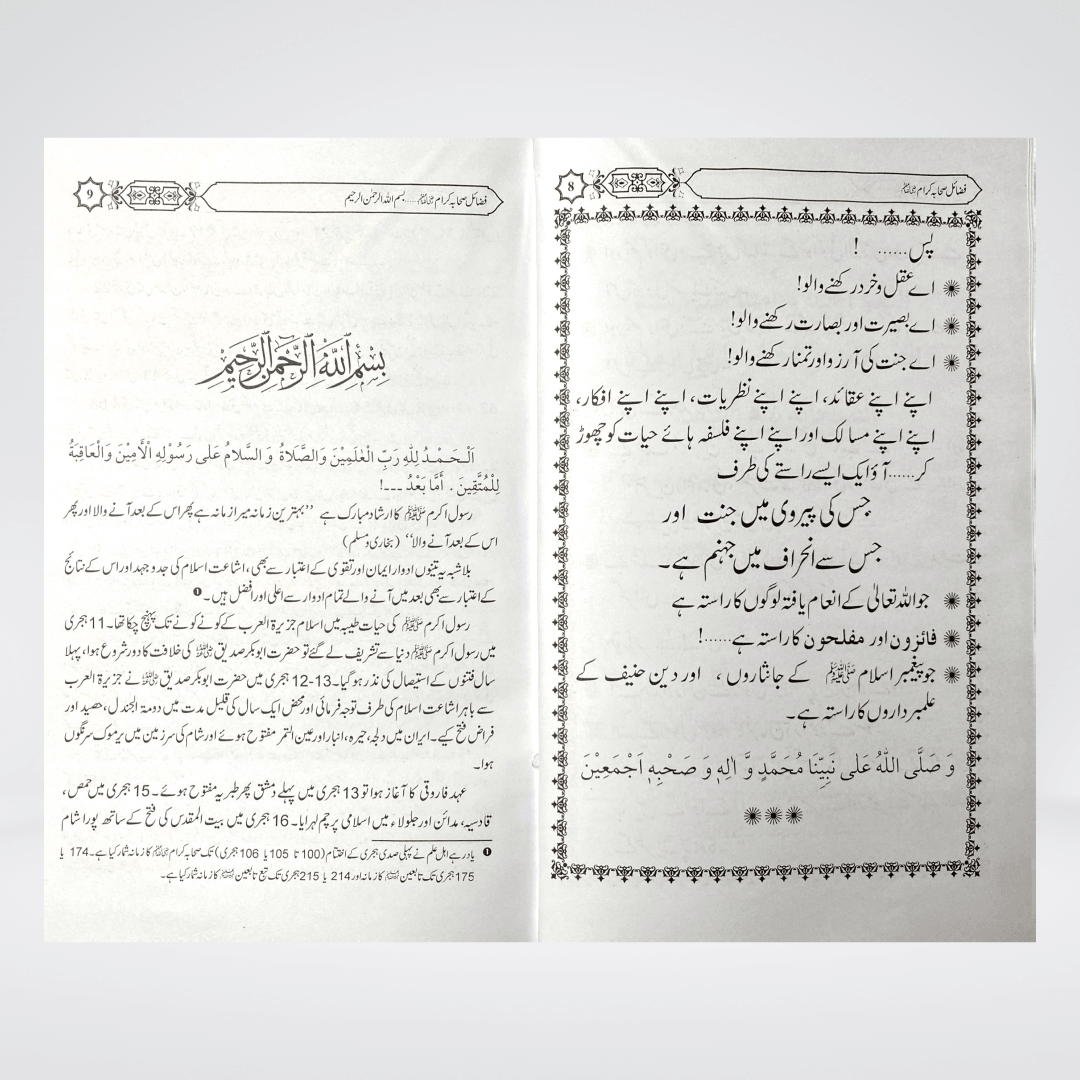 فضائل صحابہ کرام رضی اللہ عنہم
8
پس...... !
اے عقل و خرد رکھنے والو!
اے بصیرت اور بصارت رکھنے والو!
اے جنت کی آرزو اور تمنا رکھنے والو!
اپنے اپنے عقائد، اپنے اپنے نظریات، اپنے اپنے افکار،
اپنے اپنے مسالک اور اپنے اپنے فلسفہ ہائے حیات کو چھوڑ
کر......آؤ ایک ایسے راستے کی طرف
جس کی پیروی میں جنت اور
جس سے انحراف میں جہنم ہے۔
جو اللہ تعالیٰ کے انعام یافتہ لوگوں کا راستہ ہے
فائزون اور مفلحون کا راستہ ہے......!
جو پیغمبر اسلام ﷺ کے جانثاروں ، اور دین حنیف کے
علمبرداروں کا راستہ ہے۔
وَ صَلَّی اللّٰہُ عَلٰی نَبِیِّنَا مُحَمَّدٍ وَّ اٰلِہٖ وَ صَحْبِہٖ اَجْمَعِیْنَ
فضائل صحابہ کرام رضی اللہ عنہم......بسم اللہ الرحمٰن الرحیم
9
بِسْمِ اللّٰهِ الرَّحْمٰنِ الرَّحِيْمِ
اَلْـحَـمْـدُ لِلّٰهِ رَبِّ الْعٰلَمِيْنَ وَالصَّلَاةُ وَ السَّلَامُ عَلٰى رَسُوْلِهِ الْأَمِيْنَ وَالْعَاقِبَةُ
لِلْمُتَّقِيْنَ . أَمَّا بَعْدُ ۔۔۔!
رسول اکرم ﷺ کا ارشاد مبارک ہے ’’بہترین زمانہ میرا زمانہ ہے پھر اس کے بعد آنے والا اور پھر
اس کے بعد آنے والا‘‘ (بخاری و مسلم)
بلاشبہ یہ تینوں ادوار ایمان اور تقویٰ کے اعتبار سے بھی، اشاعت اسلام کی جدوجہد اور اس کے نتائج
کے اعتبار سے بھی بعد میں آنے والے تمام ادوار سے اعلیٰ اور افضل ہیں۔❶
رسول اکرم ﷺ کی حیات طیبہ میں اسلام جزیرۃ العرب کے کونے کونے تک پہنچ چکا تھا۔ 11 ہجری
میں رسول اکرم ﷺ دنیا سے تشریف لے گئے تو حضرت ابوبکر صدیق رضی اللہ عنہ کی خلافت کا دور شروع ہوا، پہلا
سال فتنوں کے استیصال کی نذر ہوگیا۔ 13-12 ہجری میں حضرت ابوبکر صدیق رضی اللہ عنہ نے جزیرۃ العرب
سے باہر اشاعت اسلام کی طرف توجہ فرمائی اور محض ایک سال کی قلیل مدت میں دومۃ الجندل، حصید اور
فراض فتح کیے۔ ایران میں دلجہ، حیرہ، انبار اور عین التمر مفتوح ہوئے اور شام کی سرزمین میں یرموک سرنگوں
ہوا۔
عہد فاروقی کا آغاز ہوا تو 13 ہجری میں پہلے دمشق پھر طبریہ مفتوح ہوئے۔ 15 ہجری میں حمص،
قادسیہ، مدائن اور جلولاء میں اسلامی پرچم لہرایا۔ 16 ہجری میں بیت المقدس کی فتح کے ساتھ پورا شام
❶ یاد رہے اہل علم نے پہلی صدی ہجری کے اختتام (100 تا 105 یا 106 ہجری) تک صحابہ کرام رضی اللہ عنہم کا زمانہ شمار کیا ہے۔ 174 یا
175 ہجری تک تابعین رحمہم اللہ کا زمانہ اور 214 یا 215 ہجری تک تبع تابعین رحمہم اللہ کا زمانہ شمار کیا ہے۔